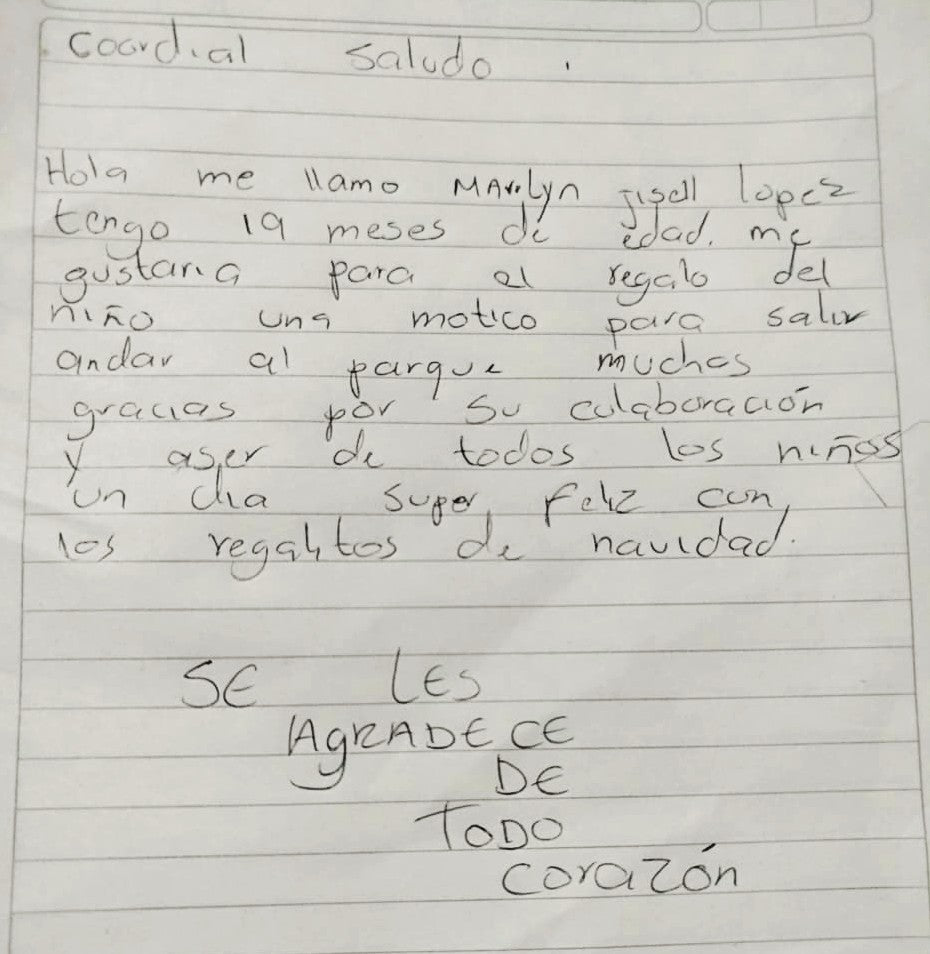 Coordial saludo.
Hola me llamo MARilyn Jisell lopez
tengo 19 meses de edad. me
gustaria para el regalo del
niño una motico para salir
andar al parque muchas
gracias por su colaboración
y aser de todos los niños
un dia super feliz con
los regalitos de navidad.
SE LES
AgRADECE
DE
TODO
corazón